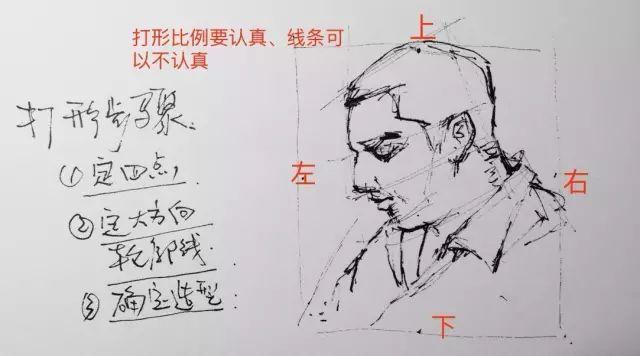 打形比例要认真、线条可
以不认真
上
打形步骤:
①定四点,
左
右
②定大方向
轮郭线.
③确定造型:
下